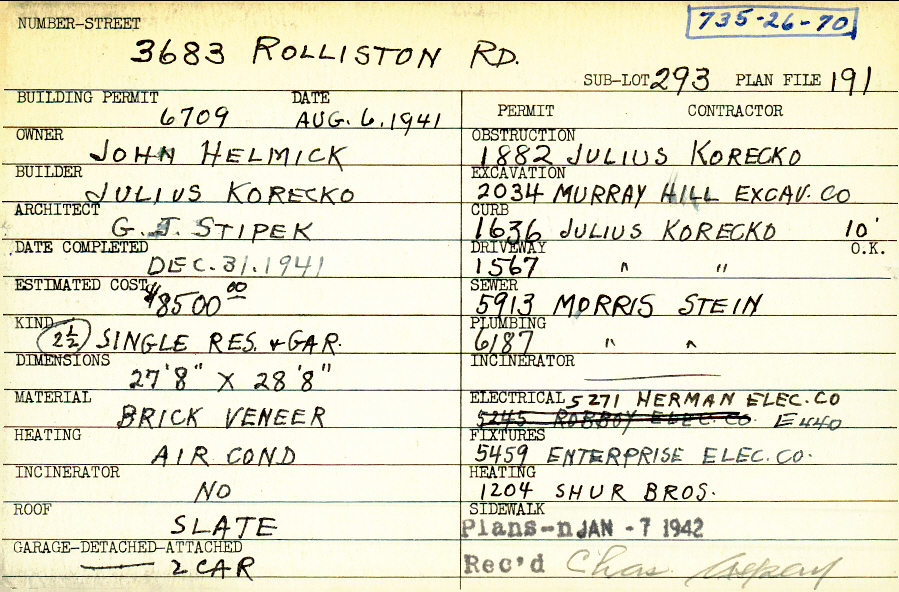 735-26-70
NUMBER-STREET
3683 ROLLISTON RD.
SUB-LOT 293 PLAN FILE 191
BUILDING PERMIT DATE
6709 AUG. 6, 1941
OWNER
JOHN HELMICK
BUILDER
JULIUS KORECKO
ARCHITECT
G. J. STIPEK
DATE COMPLETED
DEC. 31, 1941
ESTIMATED COST
$8500 00
KIND
2½ SINGLE RES. & GAR.
DIMENSIONS
27'8" X 28'8"
MATERIAL
BRICK VENEER
HEATING
AIR COND
INCINERATOR
NO
ROOF
SLATE
GARAGE-DETACHED-ATTACHED
2 CAR
PERMIT CONTRACTOR
OBSTRUCTION
1882 JULIUS KORECKO
EXCAVATION
2034 MURRAY HILL EXCAV. CO
CURB
1636 JULIUS KORECKO 10'
DRIVEWAY O.K.
1567 " "
SEWER
5913 MORRIS STEIN
PLUMBING
6187 " "
INCINERATOR
ELECTRICAL 5271 HERMAN ELEC. CO
5245 ROBBOY ELEC. CO. E440
FIXTURES
5459 ENTERPRISE ELEC. CO.
HEATING
1204 SHUR BROS.
SIDEWALK
Plans-n JAN - 7 1942
Rec'd Chas.